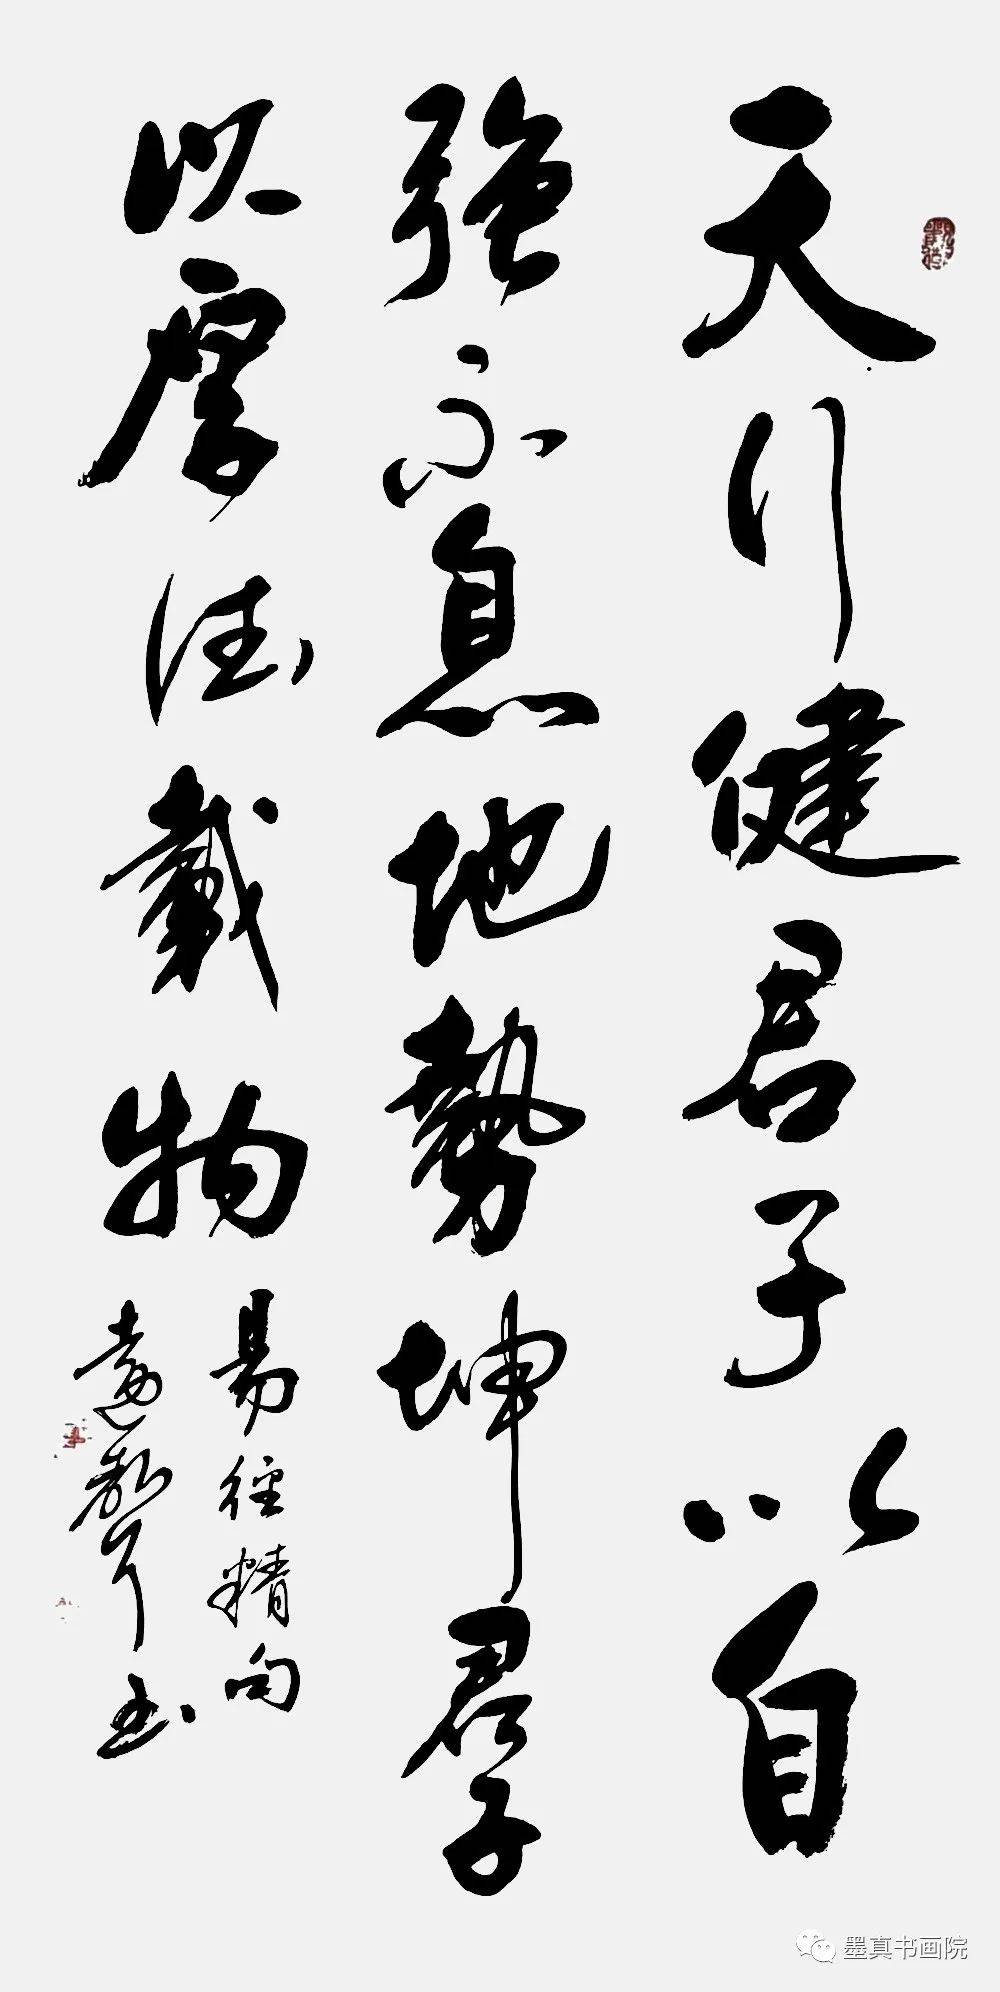 天行健君子以自
強不息地勢坤君子
以厚德載物
易经精句
书
墨真书画院